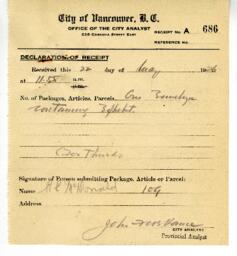 City of Vancouver, B. C.
OFFICE OF THE CITY ANALYST
RECEIPT No. A 686
REFERENCE No.
DECLARATION OF RECEIPT
Received this 22 day of May
at 11.55
No. of Packages, Articles, Parcels. One
containing Exhibit
Signature of Person submitting Package, Article or Parcel:
McDonald 109
Name
Address
CITY ANALYST
Provincial Analyst